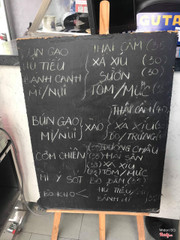 BÚN GẠO
HỦ TIẾU
BÁNH CANH
MÌ/NUI
THẬP CẨM (35)
XÁ XÍU (30)
SƯỜN (30)
TÔM/MỰC
BÚN GẠO
MÌ/NUI
XÀO
THẬP CẨM
XÁ XÍU
BÒ/TRỨNG
CƠM CHIÊN
DƯƠNG CHÂU
HẢI SẢN
XÁ XÍU
TÔM/MỰC
MÌ Ý SỐT BÒ BẰM
BÒ KHO
HỦ TIẾU
BÁNH MÌ
GUTA